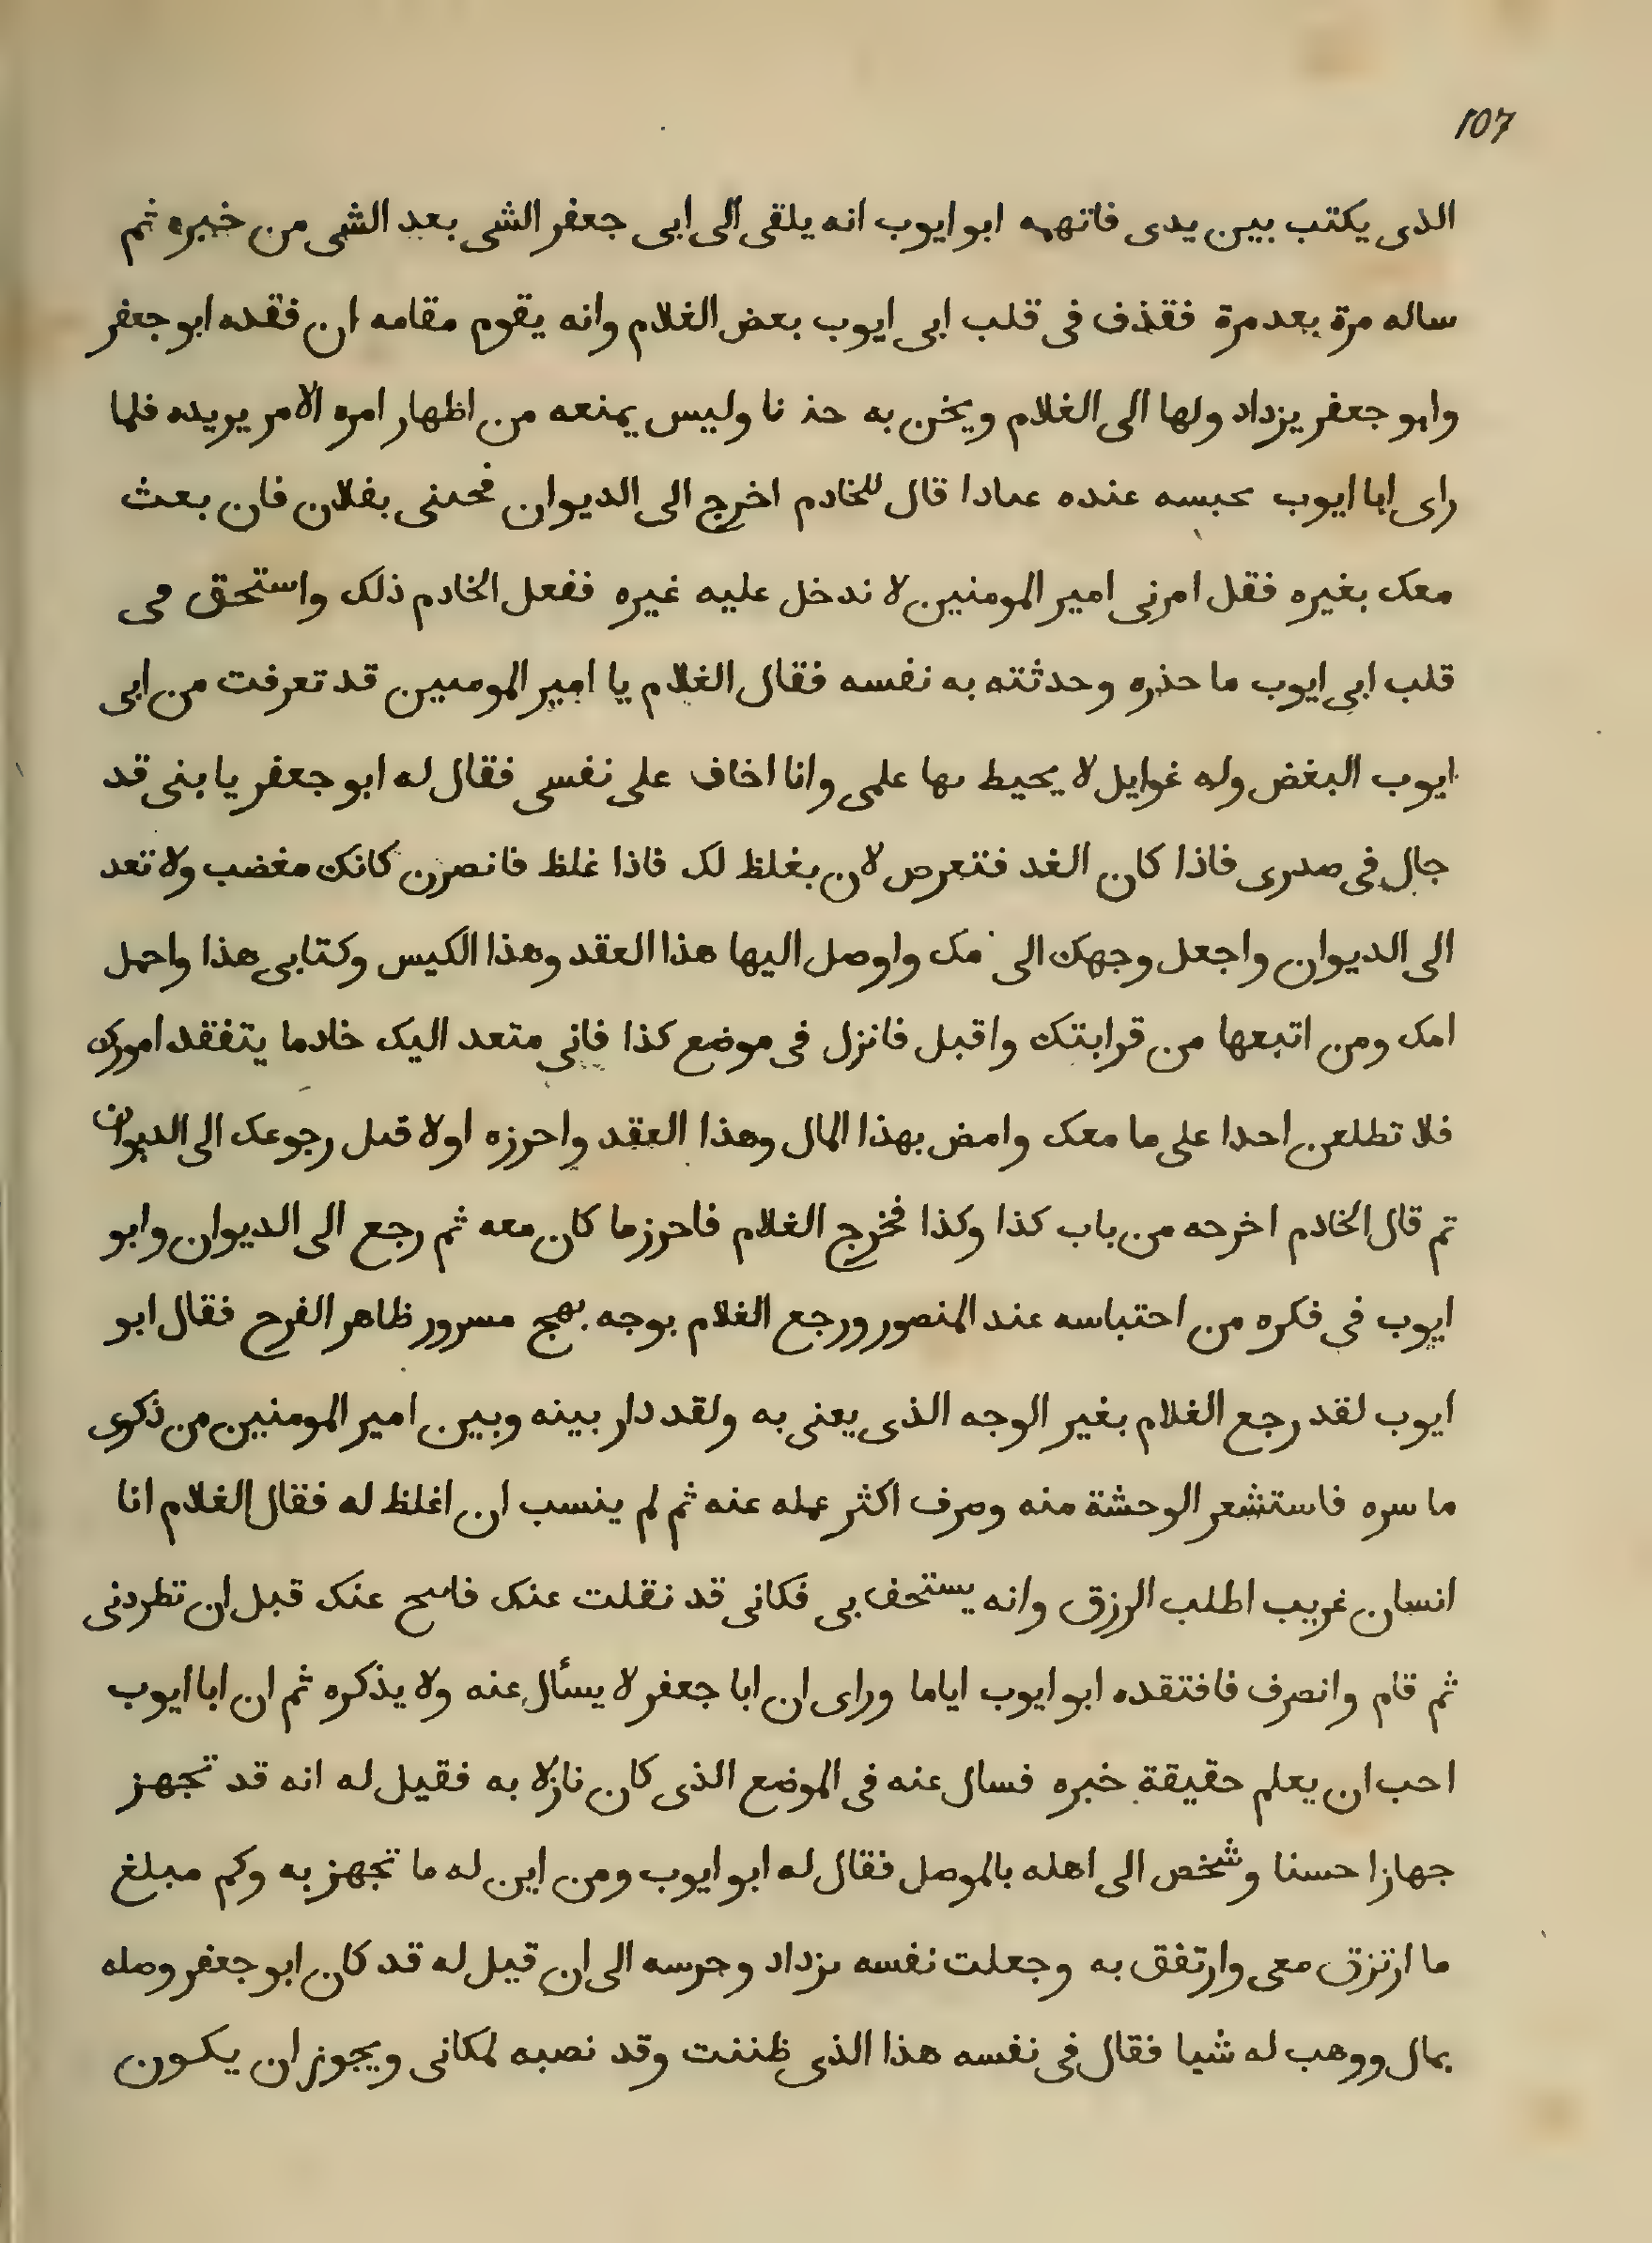 107
الذى يكتب بين يدى فاتهمه ابو ايوب انه يلقى الى ابى جعفر الشى بعد الشى من خبره ثم
ساله مرة بعد مرة فقذف فى قلب ابى ايوب بعض الغلام وانه يقوم مقامه ان فقده ابو جعفر
وابو جعفر يزداد ولها الى الغلام ويخن به حذ نا وليس يمنعه من اظهار امره الامر يريده فلما
راى ابا ايوب بحبسه عنده عمادا قال للخادم اخرج الى الديوان فجئنى بفلان فان بعث
معك بغيره فقل امرنى امير المومنين لا ندخل عليه غيره ففعل الخادم ذلك واستحق فى
قلب ابى ايوب ما حذره وحدثته به نفسه فقال الغلام يا امير المومىين قد تعرفت من ابى
ايوب البغض وله غوايل لا يحيط بها علمى وانا اخاف على نفسى فقال له ابو جعفر يا بنى قد
جال فى صدرى فاذا كان الغد فتعرض لان بغلظ لك فاذا غلظ فانصرن كانك مغضب ولا تعد
الى الديوان واجعل وجهك الى مك واوصل اليها هذا العقد وهذا الكيس وكتابى هذا واحمل
امك ومن اتبعها من قرابتك واقبل فانزل فى موضع كذا فانى متعد اليك خادما يتفقد امورك
فلا تطلعن احدا على ما معك وامض بهذا المال وهذا العقد واحرزه اولا قبل رجوعك الى الديوان
تم قال الخادم اخرحه من باب كذا وكذا فخرج الغلام فاحرز ما كان معه ثم رجع الى الديوان وابو
ايوب فى فكره من احتباسه عند المنصور ورجع الغلام بوجه بهج مسرور ظاهر الفرح فقال ابو
ايوب لقد رجع الغلام بغير الوجه الذى يعنى به ولقد دار بينه وبين امير المومنين من ذكرى
ما سره فاستشعر الوحشة منه وصرف اكثر عمله عنه ثم لم ينسب ان اغلظ له فقال الغلام انا
انسان غريب اطلب الرزق وانه يستخف بى فكانى قد نقلت عنك فاسح عنك قبل ان تطردنى
ثم قام وانصرف فافتقده ابو ايوب اياما وراى ان ابا جعفر لا يسأل عنه ولا يذكره ثم ان ابا ايوب
احب ان يعلم حقيقة خبره فسال عنه فى الموضع الذى كان نازلا به فقيل له انه قد تجهز
جهازا حسنا وشخص الى اهله بالموصل فقال له ابو ايوب ومن اين له ما تجهز به وكم مبلغ
ما ارتزق معى وارتفق به وجعلت نفسه يزداد وحرسه الى ان قيل له قد كان ابو جعفر وصله
بمال ووهب له شيا فقال فى نفسه هذا الذى ظننت وقد نصبه لمكانى ويجوز ان يكون